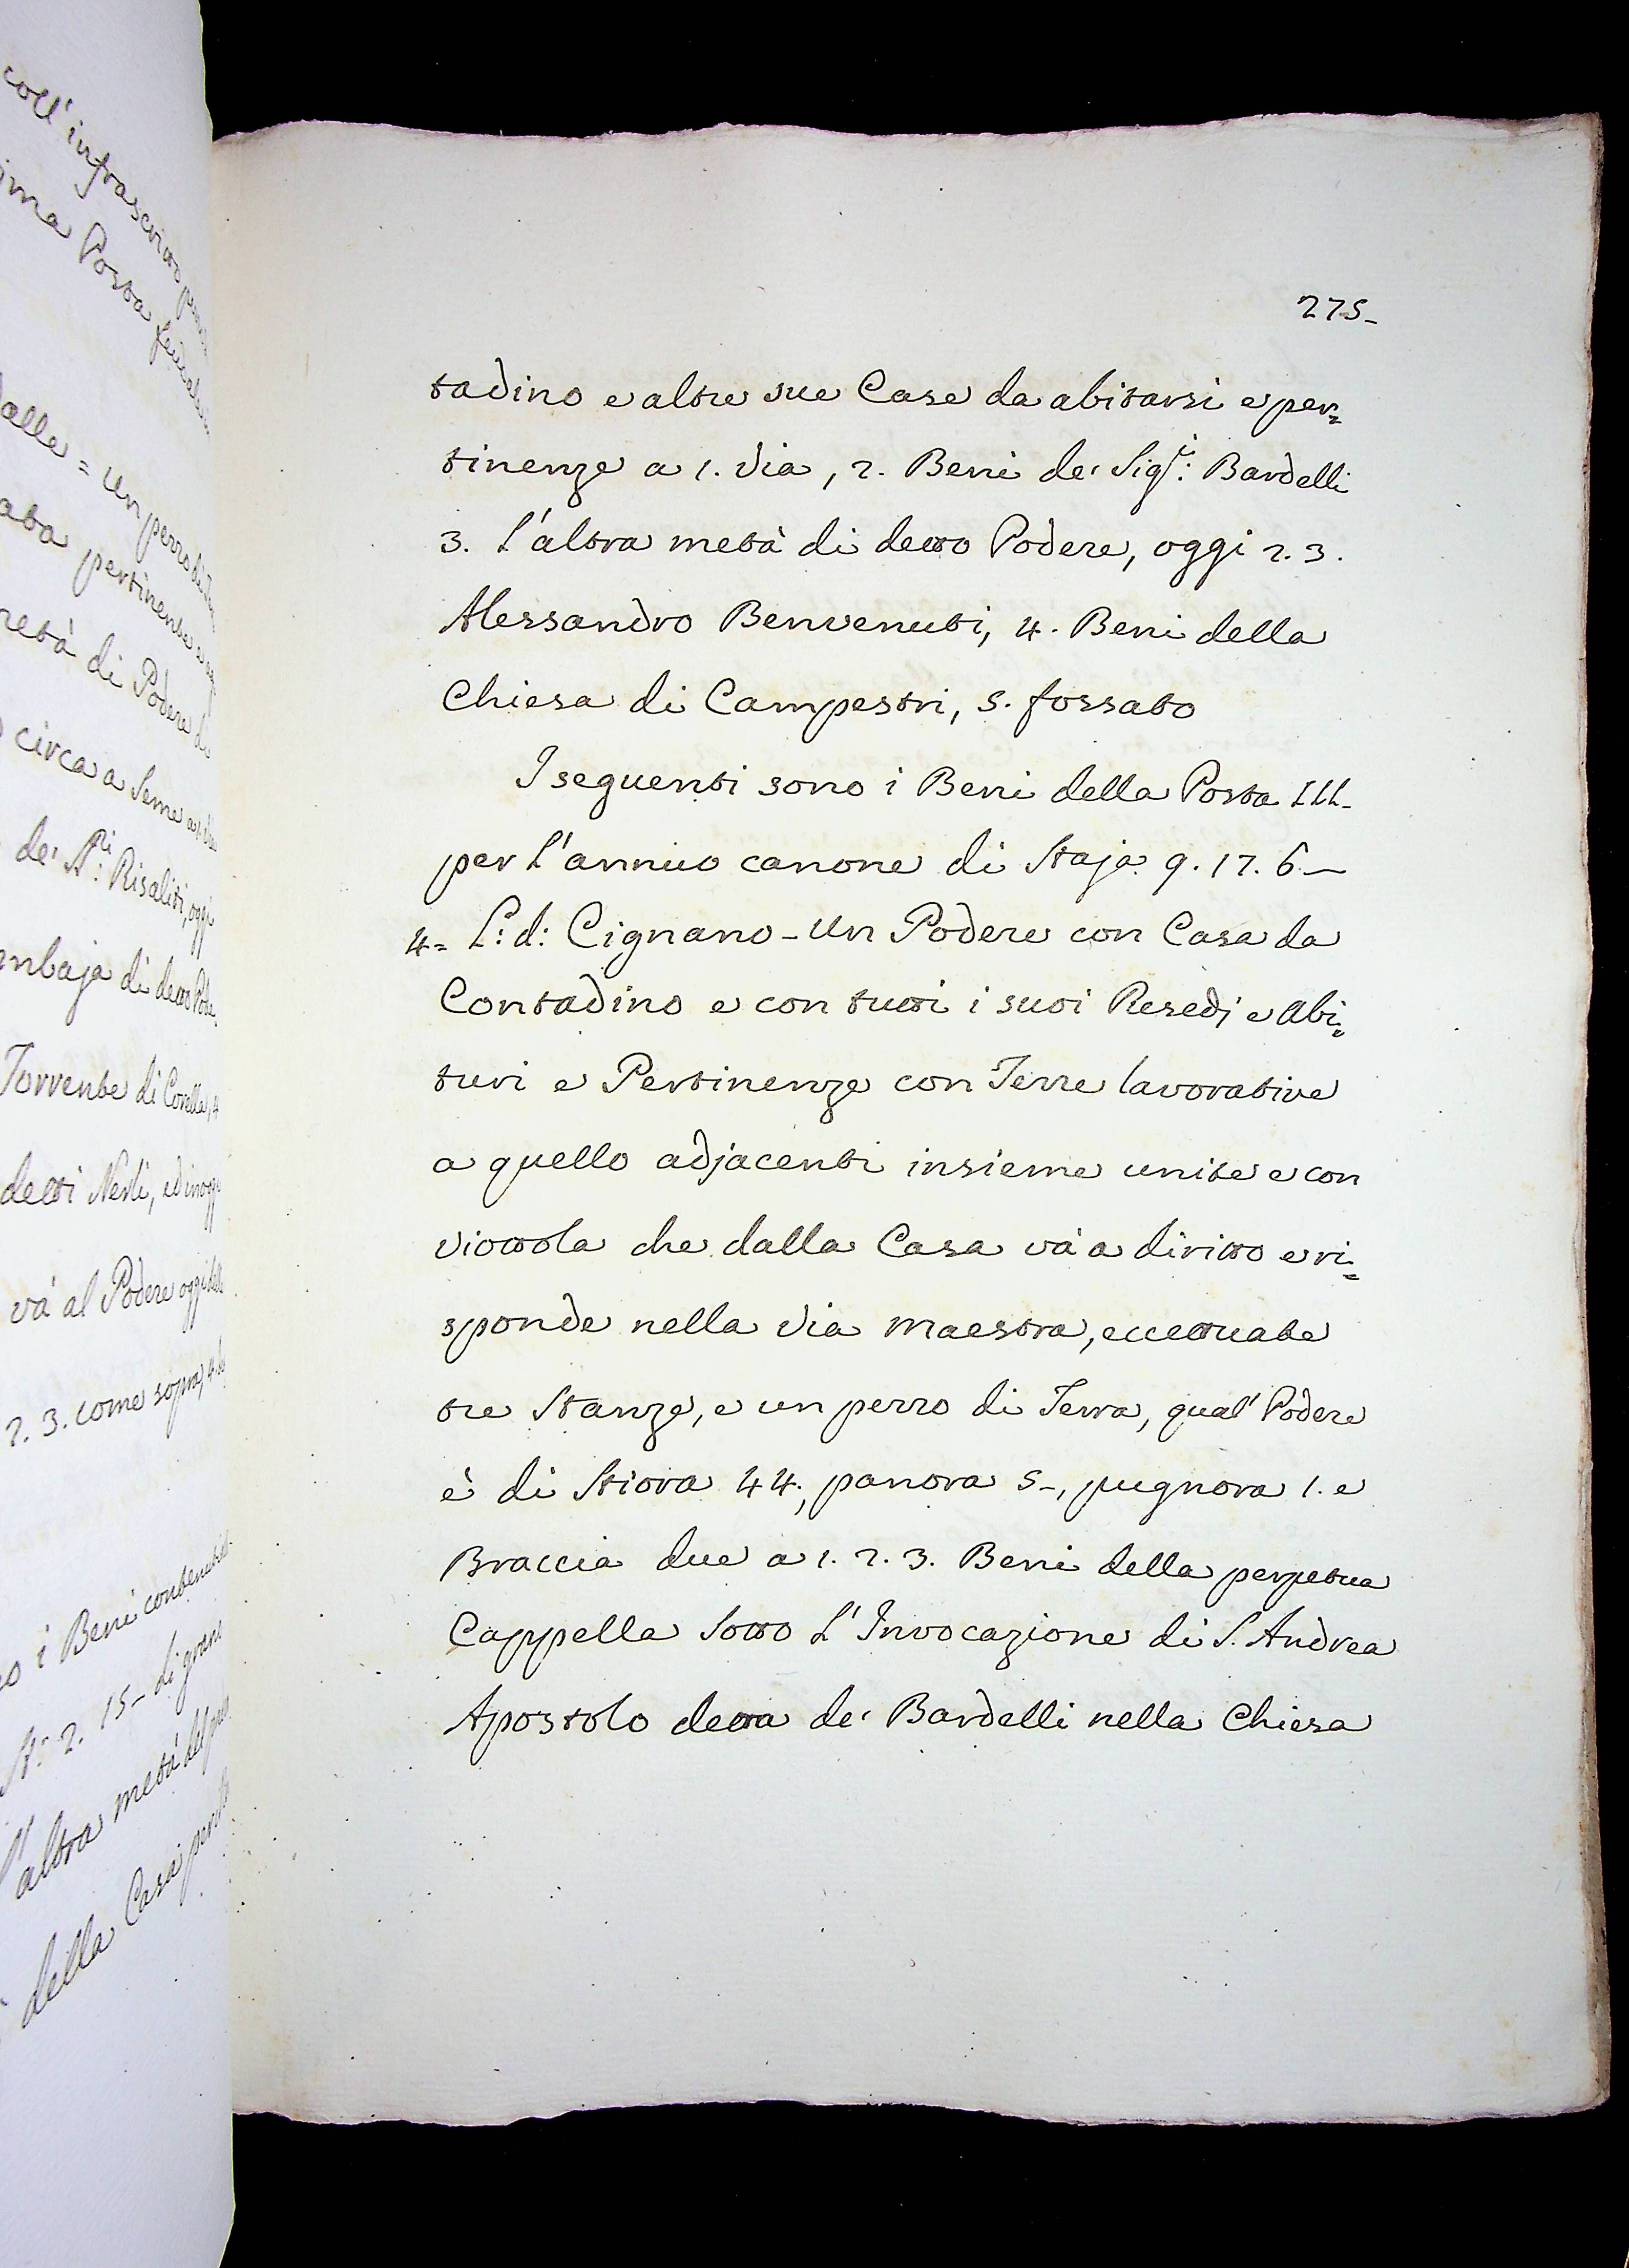 coll' infrascritto
ima Posta
dalle = un pezzo di
ata pertinente
metà di Podere
circa a Seme
de' SS:ri Risaliti, oggi
di detto Pode
Torrente di Corella, 4
detti Nerli, ed in oggi
và al Podere oggi
2. 3. come sopra, 4.
i Beni contenuti
St: 2. 15 - di grano
l'altra metà del
della Casa per
275-
tadino e altre sue Case da abitarsi e per=
tinenze a 1. via, 2. Beni de' Sig:ri Bardelli
3. L'altra metà di detto Podere, oggi 2. 3.
Alessandro Benvenuti, 4. Beni della
Chiesa di Campestri, 5. fossato
I seguenti sono i Beni della Posta III-
per l'annuo canone di Staja 9. 17. 6 -
4= L: d: Cignano - Un Podere con Casa da
Contadino e con tutti i suoi Resedj e Abi=
turi e Pertinenze con Terre lavorative
a quello adjacenti insieme unite e con
viottola che dalla Casa và a diritto e ri=
sponde nella via maestra, eccettuate
tre Stanze, e un pezzo di Terra, qual' Podere
è di Stiora 44., panora 5-, pugnora 1. e
Braccia due a 1. 2. 3. Beni della perpetua
Cappella sotto L'Invocazione di S. Andrea
Apostolo detta de' Bardelli nella Chiesa